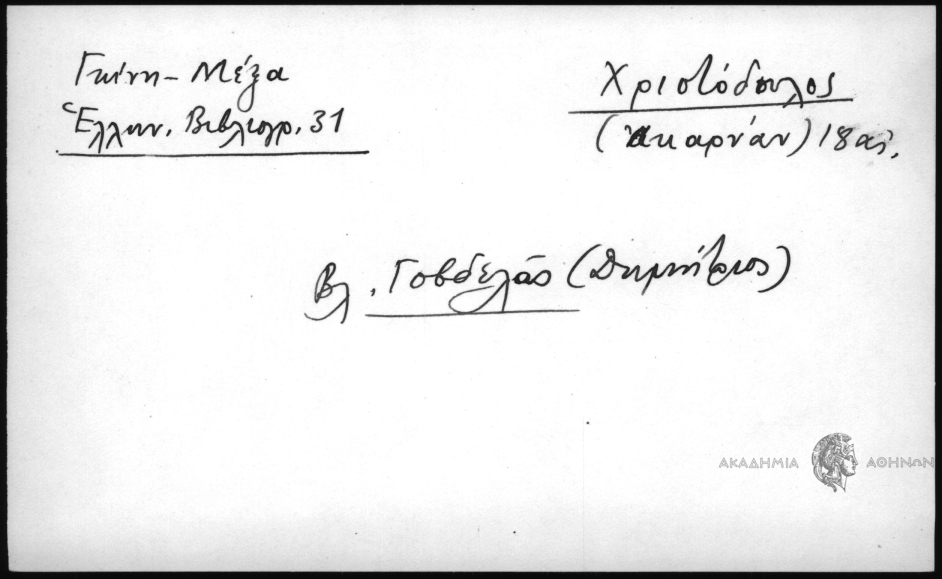 Γκίνη - Μέξα
Ἑλλην. Βιβλιογρ. 31
Χριστόδουλος
(Ἀκαρνάν) 18 αἰ.
Βλ. Γοβδελᾶς (Δημήτριος)
ΑΚΑΔΗΜΙΑ ΑΘΗΝΩΝ